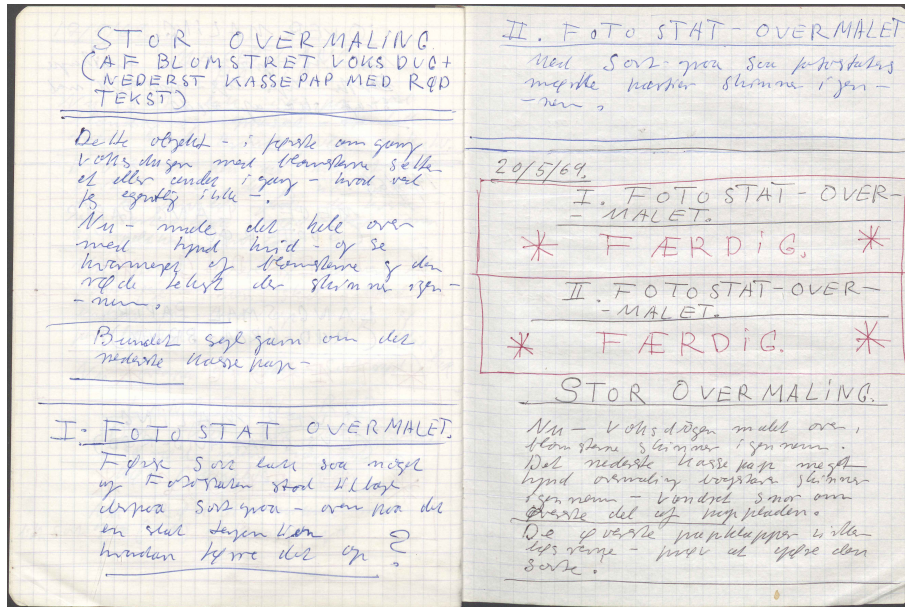 STOR OVERMALING.
(AF BLOMSTRET VOKSDUG +
NEDERST KASSEPAP MED RØD
TEKST)
Dette objekt - i første omgang
voksdugen med blomsterne sætter
et eller andet i gang - hvad ved
jeg egentlig ikke -.
Nu - male det hele over
med tynd hvid - og se
hvormeget af blomsterne og den
røde tekst der skinner igen-
-nem.
Bundet sejlgarn om det
nederste kassepap -
I. FOTOSTAT OVERMALET.
Først sort lak saa noget
af Fotostaten stod tilbage
derpaa sort graa - oven paa det
en slat
hvordan tørre det op ?
II. FOTOSTAT-OVERMALET
Med sort-graa saa fotostatens
mørke partier skinner igen-
-nem.
20/5/69.
I. FOTOSTAT-OVER-
-MALET.
* FÆRDIG. *
II. FOTOSTAT-OVER-
-MALET.
* FÆRDIG. *
STOR OVERMALING.
Nu - voksdugen malet over,
blomsterne skinner igennem.
Det nederste kassepap meget
tynd overmaling bogstaver skinner
igennem - vandret snor om
øverste del af papladen.
De øverste papklapper ville
løsrive - prøv at gøre den
sorte.